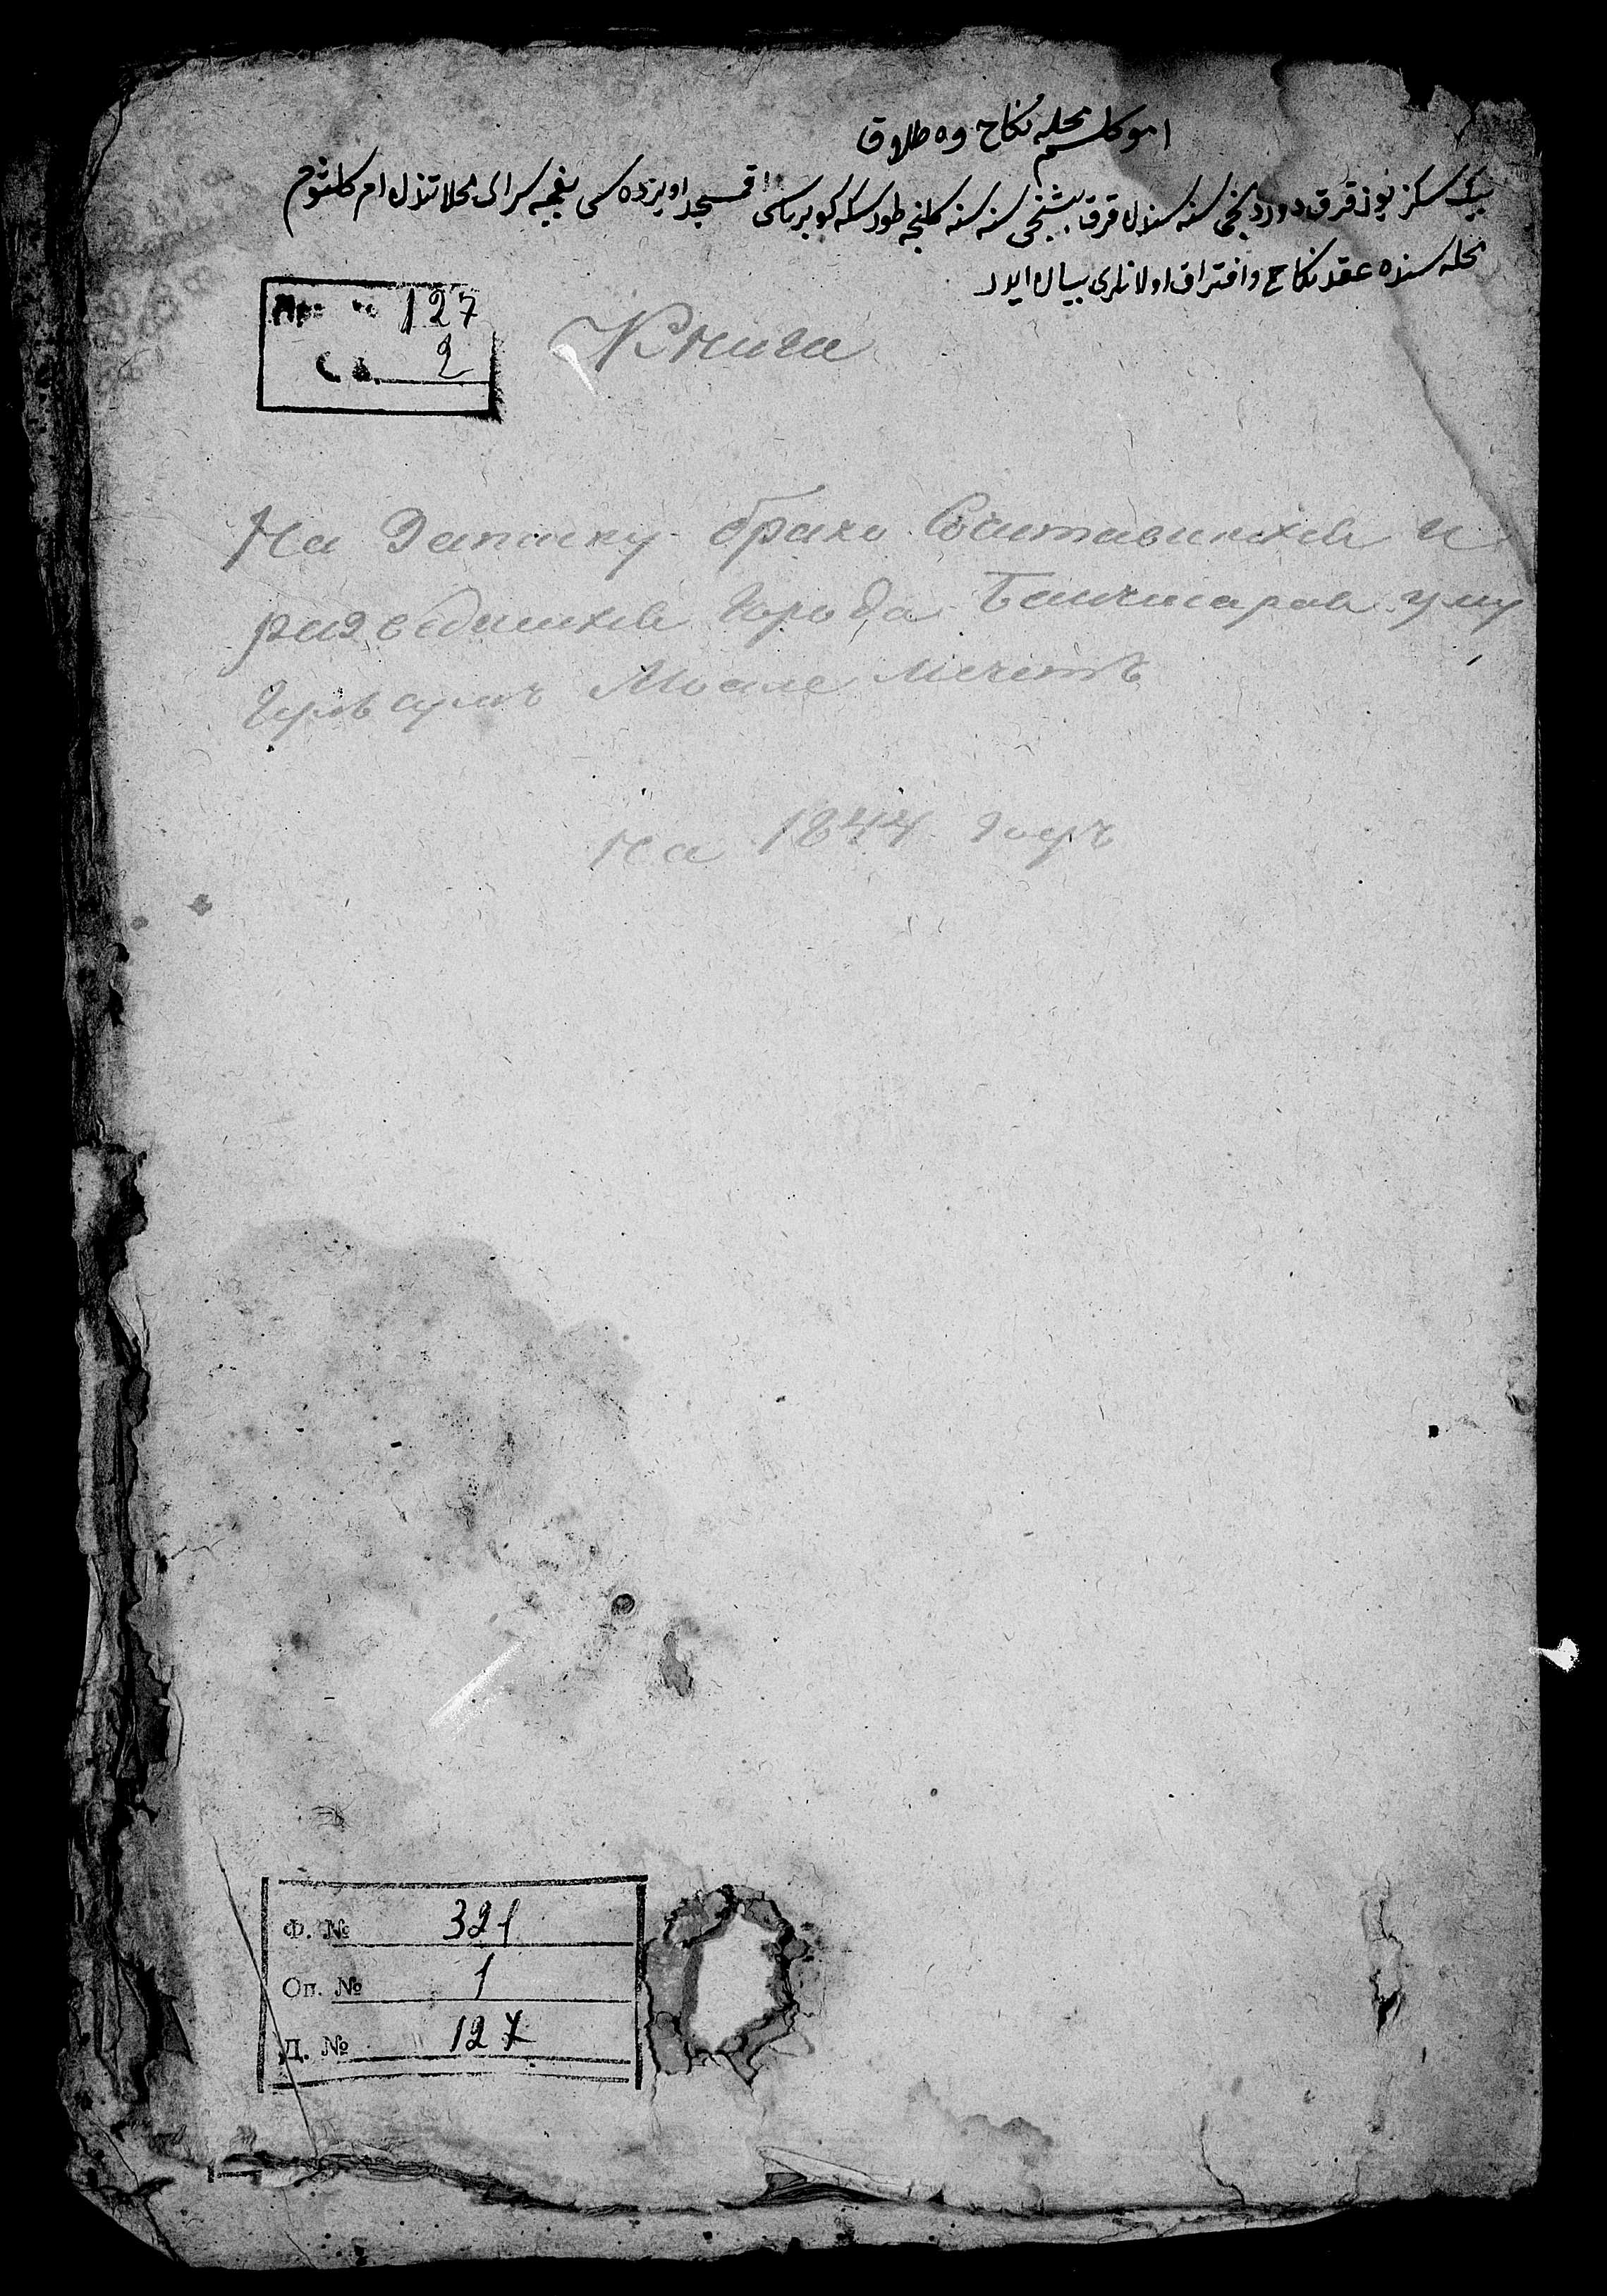 محله نكاح وه طلاق
بيك سكز يوز قرق دوردنجى سنه سندن قرق بشنجى سنه سنه كلنجه طودسكه كوبرباسى اقمسجد اويزده سى بغچه سراى محلاتندن ام كلثوم
محله سنده عقد نكاح وافتراق اولانلرى بيان ايدر
127
2
Книга
На Записку брако Сочитавшихся и
разведшихся Города Бахчисарая
Мечеть
на 1844 годъ
Ф. № 321
Оп. № 1
Д. № 127